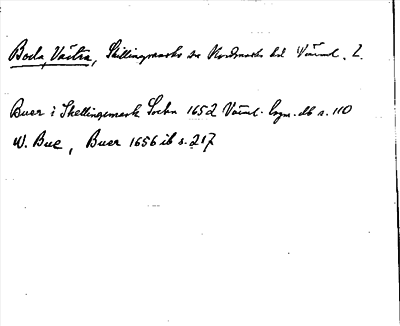 Boda, Västra, Skillingmarks sn Nordmarks hd Värml. L.
Buer i Skellingemark Sochn 1652 Värml. lagm. db s. 110
W. Bue, Buer 1656 ib s. 217